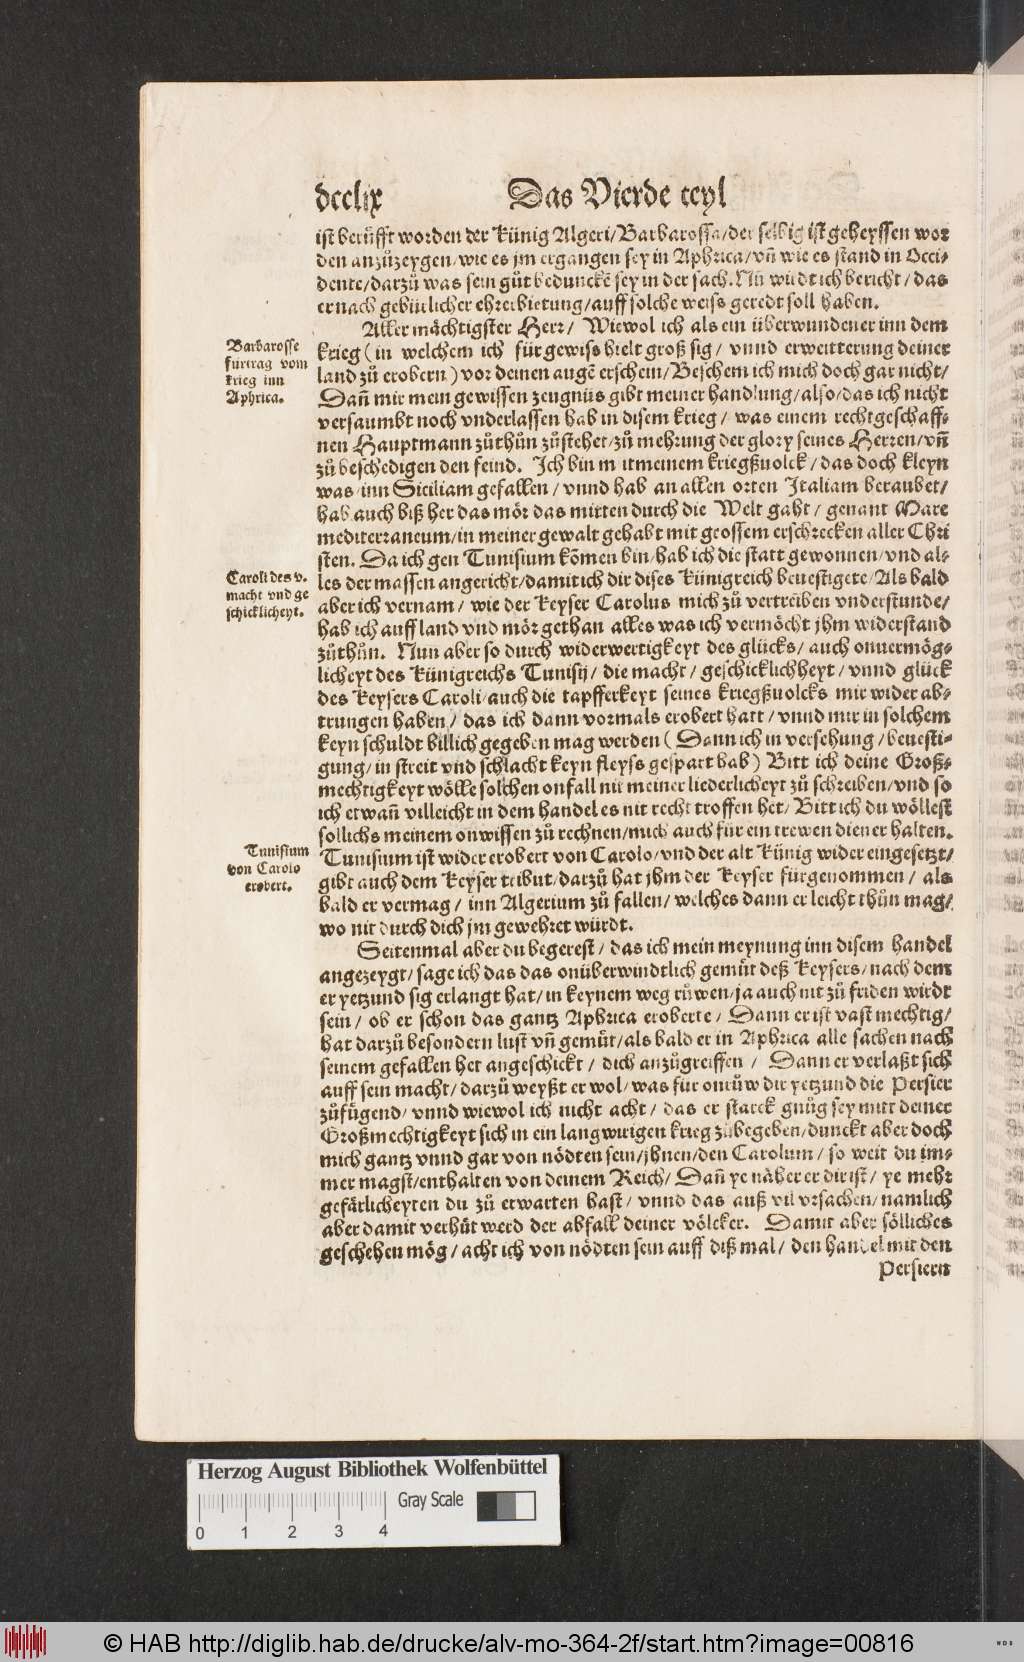 dcclix Das Vierde teyl
ist beruͤfft worden der Künig Algeri/Barbarossa/der selbig ist geheyssen wor
den anzuͦzeygen/wie es jm ergangen sey in Aphrica/vn̄ wie es stand in Occi
dente/darzuͦ was sein guͦt beduncke͂ sey in der sach. Nu͂ würdt ich bericht/das
er nach gebürlicher ehrerbietung/auff solche weiss geredt soll haben.
Aller mächtigster Herr/ Wiewol ich als ein überwundener inn dem
krieg (in welchem ich für gewiss hielt groß sig/ vnnd erweitterung deiner
land zuͦ erobern) vor deinen auge͂ erschein/Beschem ich mich doch gar nicht/
Dañ mir mein gewissen zeugnüs gibt meiner handlung/also/das ich nicht
versaumbt noch vnderlassen hab in disem krieg/ was einem rechtgeschaff-
nen Hauptmann zuͦthuͦn zuͦstehet/zuͦ mehrung der glory seines Herren/vn̄
zuͦ beschedigen den feind. Ich bin mit meinem kriegßuolck/das doch kleyn
was/inn Siciliam gefallen/ vnnd hab an allen orten Italiam beraubet/
hab auch biß her das mör das mitten durch die Welt gaht/ genant Mare
mediterraneum/in meiner gewalt gehabt mit grossem erschrecken aller Chri
sten. Da ich gen Tunisium kom̄en bin/hab ich die statt gewonnen/vnd al-
les der massen angericht/damit ich dir dises Künigreich beuestigete/Als bald
aber ich vernam/ wie der Keyser Carolus mich zuͦ vertreiben vnderstunde/
hab ich auff land vnd mör gethan alles was ich vermöcht jhm widerstand
zuͦthuͦn. Nun aber so durch widerwertigkeyt des glücks/ auch onuermög-
licheyt des Künigreichs Tunisij/ die macht/ geschicklichheyt/ vnnd glück
des Keysers Caroli/auch die tapfferkeyt seines kriegßuolcks mir wider ab-
trungen haben/ das ich dann vormals erobert hatt/ vnnd mir in solchem
keyn schuldt billich gegeben mag werden (Dann ich in versehung/beuesti-
gung/in streit vnd schlacht keyn fleyss gespart hab) Bitt ich deine Groß-
mechtigkeyt wölle solchen onfall nit meiner liederlicheyt zuͦ schreiben/vnd so
ich etwañ villeicht in dem handel es nit recht troffen het/ Bitt ich du wöllest
sollichs meinem onwissen zuͦ rechnen/mich auch für ein trewen diener halten.
Tunisium ist wider erobert von Carolo/vnd der alt Künig wider eingesetzt/
gibt auch dem Keyser tribut/darzuͦ hat jhm der Keyser fürgenommen/ als
bald er vermag/ inn Algerium zuͦ fallen/welches dann er leicht thuͦn mag/
wo nit durch dich jm gewehret würdt.
Seitenmal aber du begerest/ das ich mein meynung inn disem handel
angezeygt/sage ich das das onüberwindtlich gemuͤt deß Keysers/nach dem
er yetzund sig erlangt hat/in keynem weg ruͦwen/ja auch nit zuͦ friden wirdt
sein/ ob er schon das gantz Aphrica eroberte/ Dann er ist vast mechtig/
hat darzuͦ besondern lust vn̄ gemuͤt/als bald er in Aphrica alle sachen nach
seinem gefallen het angeschickt/ dich anzuͦgreiffen/ Dann er verlaßt sich
auff sein macht/darzuͦ weyßt er wol/was für ontrüw dir yetzund die Persier
zuͦfuͤgend/ vnnd wiewol ich nicht acht/ das er starck gnuͦg sey mitt deiner
Großmechtigkeyt sich in ein langwirigen krieg zuͦbegeben/dunckt aber doch
mich gantz vnnd gar von nödten sein/jhnen/den Carolum/so weit du im-
mer magst/enthalten von deinem Reich/ Dañ ye näher er dir ist/ ye mehr
gefärlicheyten du zuͦ erwarten hast/ vnnd das auß vil vrsachen/namlich
aber damit verhuͤt werd der abfall deiner völcker. Damit aber sölliches
geschehen mög/acht ich von nödten sein auff diß mal/ den handel mit den
Persiern
Barbarosse
fürtrag vom
krieg inn
Aphrica.
Caroli des v.
macht vnd ge
schicklicheyt.
Tunisium
von Carolo
erobert.
Herzog August Bibliothek Wolfenbüttel
Gray Scale
0 1 2 3 4
© HAB http://diglib.hab.de/drucke/alv-mo-364-2f/start.htm?image=00816